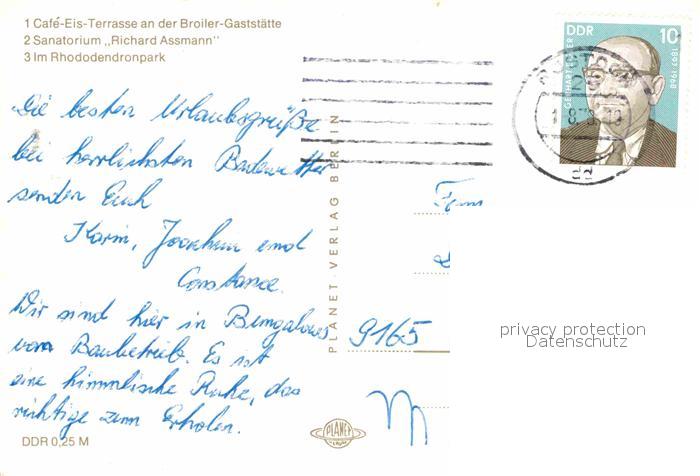 1 Café-Eis-Terrasse an der Broiler-Gaststätte
2 Sanatorium „Richard Assmann"
3 Im Rhododendronpark
DDR 10
1897-1968
Die besten Urlaubsgrüße
bei herrlichsten Badewetter
senden Euch
Karin, Joachim und
Constance.
Wir sind hier in Bungalows
vom Baubetrieb. Es ist
eine himmlische Ruhe, das
richtige zum Erholen.
PLANET-VERLAG BERLIN
Fam
9165
privacy protection
Datenschutz
DDR 0,25 M
PLANET